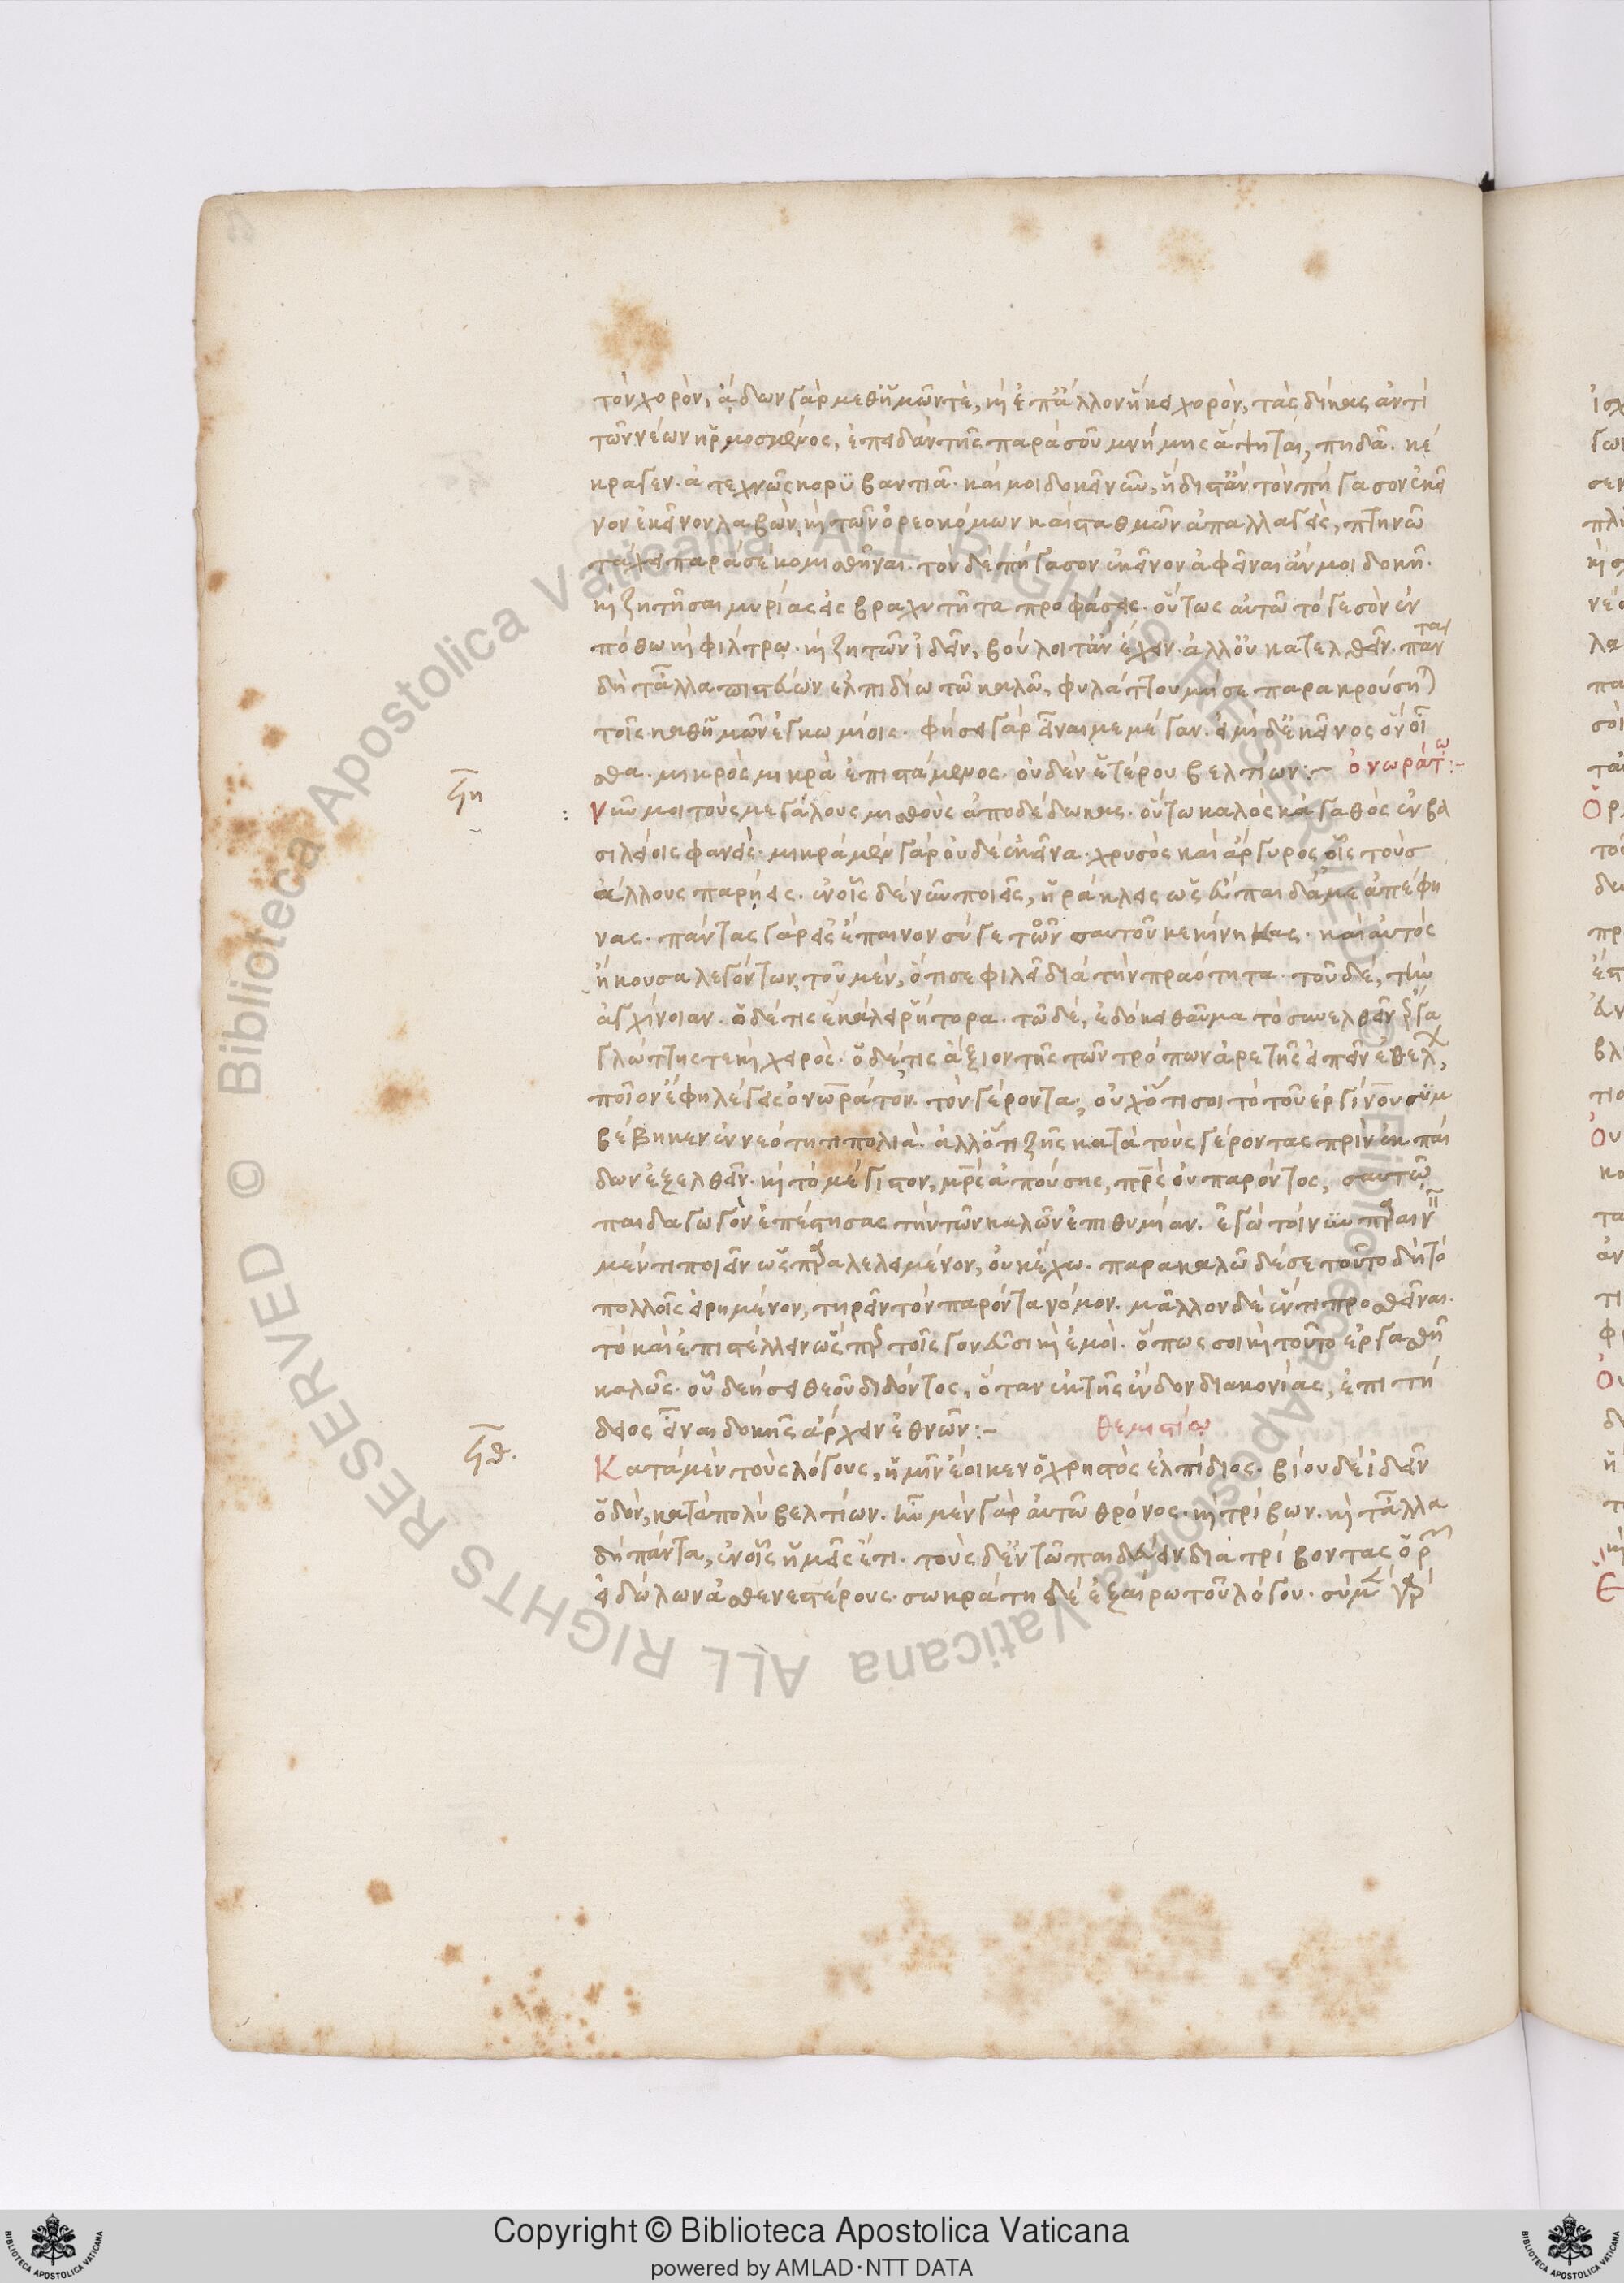 τὸν χορόν, ἄδων γὰρ μεθ' ἡμῶν τὲ, καὶ ἐπ' ἄλλον ἧκε χορόν, τὰς δίκας ἀντὶ
τῶν νέων ἡρμοσμένος, ἐπειδὰν τῆς παρὰ σοῦ μνήμης ἅψηται, πηδᾶ. κέ
κραγεν. ἀτεχνῶς κορυβαντιᾶ. καί μοι δοκεῖ νῦν, ἥδιστ' ἂν τὸν πήγασον ἐκεῖ
νον ἐκεῖνον λαβὼν, καὶ τῶν ὀρεοκόμων καὶ σταθμῶν ἀπαλλαγεὶς, πτηνῶ
τάχει παρὰ σὲ κομισθῆναι. τὸν δὲ πήγασον ἐκεῖνον ἀφεῖναι ἄν μοι δοκῆ.
καὶ ζητῆσαι μυρίας εἰς βραχυτῆτα προφάσεις. οὕτως αὐτῶ τό γε σὸν ἐν
πόθω καὶ φίλτρω. καὶ ζητῶν ἰδεῖν, βούλοιτ' ἂν ἔχειν. ἀλλ' οὐ κατελθεῖν. πάντα
δὴ τἄλλα πιστεύων ἐλπιδίω τῶ καλῶ, φυλάττου μή σε παρακρούση
τοῖς καθ' ἡμῶν ἐγκωμίοις. φήσει γὰρ εἶναί με μέγαν. εἰμὶ δ' ἐκεῖνος ὃν οἶ
σθα. μικρὸς μικρὰ ἐπιστάμενος. οὐδὲν ἑτέρου βελτίων:- ὀνωράτω:-
Νῦν μοι τοὺς μεγάλους μισθοὺς ἀποδέδωκας. οὕτω καλὸς κἀγαθὸς ἐν βα
σιλείοις φανείς. μικρὰ μὲν γὰρ οὐδὲ ἐκεῖνα. χρυσὸς καὶ ἄργυρος οἷς τοὺς
ἄλλους παρήεις. ἐν οἷς δὲ νῦν ποιεῖς, ἡράκλεις ὡς εὔπαιδά με ἀπέφη
νας. πάντας γὰρ εἰς ἔπαινον σύ γε τὸν σαυτοῦ κεκίνηκας. καὶ αὐτὸς
ἤκουσα λεγόντων, τοῦ μὲν, ὅτι σε φιλεῖ διὰ τὴν πραότητα. τοῦ δὲ, τὴν
ἀγχίνοιαν. ὁ δέ τις ἐκάλει ῥήτορα. τῶ δέ, ἐδόκει θαῦμα τὸ συνελθεῖν ἔργα
γλώττης τε καὶ χειρός. ὁ δέ τις ἄξιον τῆς τῶν τρόπων ἀρετῆς εἰπεῖν ἐθέλων,
ποῖον ἔφη λέγεις ὀνωράτον. τὸν γέροντα, οὐχ' ὅτι σοι τὸ τοῦ ἐργίνου συμ
βέβηκεν ἐν νεότητι πολιά. ἀλλ' ὅτι ζῆς κατὰ τοὺς γέροντας πρὶν ἐκ παί
δων ἐξελθεῖν. καὶ τὸ μέγιστον, μητρὸς ἀπούσης, πατρὸς οὐ παρόντος, σαυτῶ
παιδαγωγὸν ἐπέστησας τὴν τῶν καλῶν ἐπιθυμίαν. ἐγὼ τοίνυν παραινεῖν
μέν τι ποιεῖν ὡς παραλελειμένον, οὐκ ἔχω. παρακαλῶ δέ σε τοῦτο δὴ τὸ
πολλοῖς εἰρημένον, τηρεῖν τὸν παρόντα νόμον. μᾶλλον δὲ ἕν τι προσθεῖναι.
τὸ καὶ ἐπιστέλλειν ὥσπερ τοῖς γονεῦσι καὶ ἐμοί. ὅπως σοι καὶ τοῦτο ἐργασθῆ
καλῶς. οὗ δεήσει θεοῦ διδόντος, ὅταν ἐκ τῆς ἔνδον διακονίας, ἐπιτή
δειος εἶναι δοκῆς ἄρχειν ἐθνῶν:- θεμιστίω
Κατὰ μὲν τοὺς λόγους, ἡμῖν ἔοικεν ὁ χρηστὸς ἐλπίδιος. βίου δὲ ἰδεῖν
ὁδὸν, κατὰ πολὺ βελτίων. ἦν μὲν γὰρ αὐτῶ θρόνος. καὶ τρίβων. καὶ τἄλλα
δὴ πάντα, ἐν οἷς ἡμεῖς ἔτι. τοὺς δ' ἐν τῶ παιδεύειν διατρίβοντας ὁρῶ
εἰδώλων ἀσθενεστέρους. σωκράτη δὲ ἐξαίρω τοῦ λόγου. σὺ μὲν γὰρ